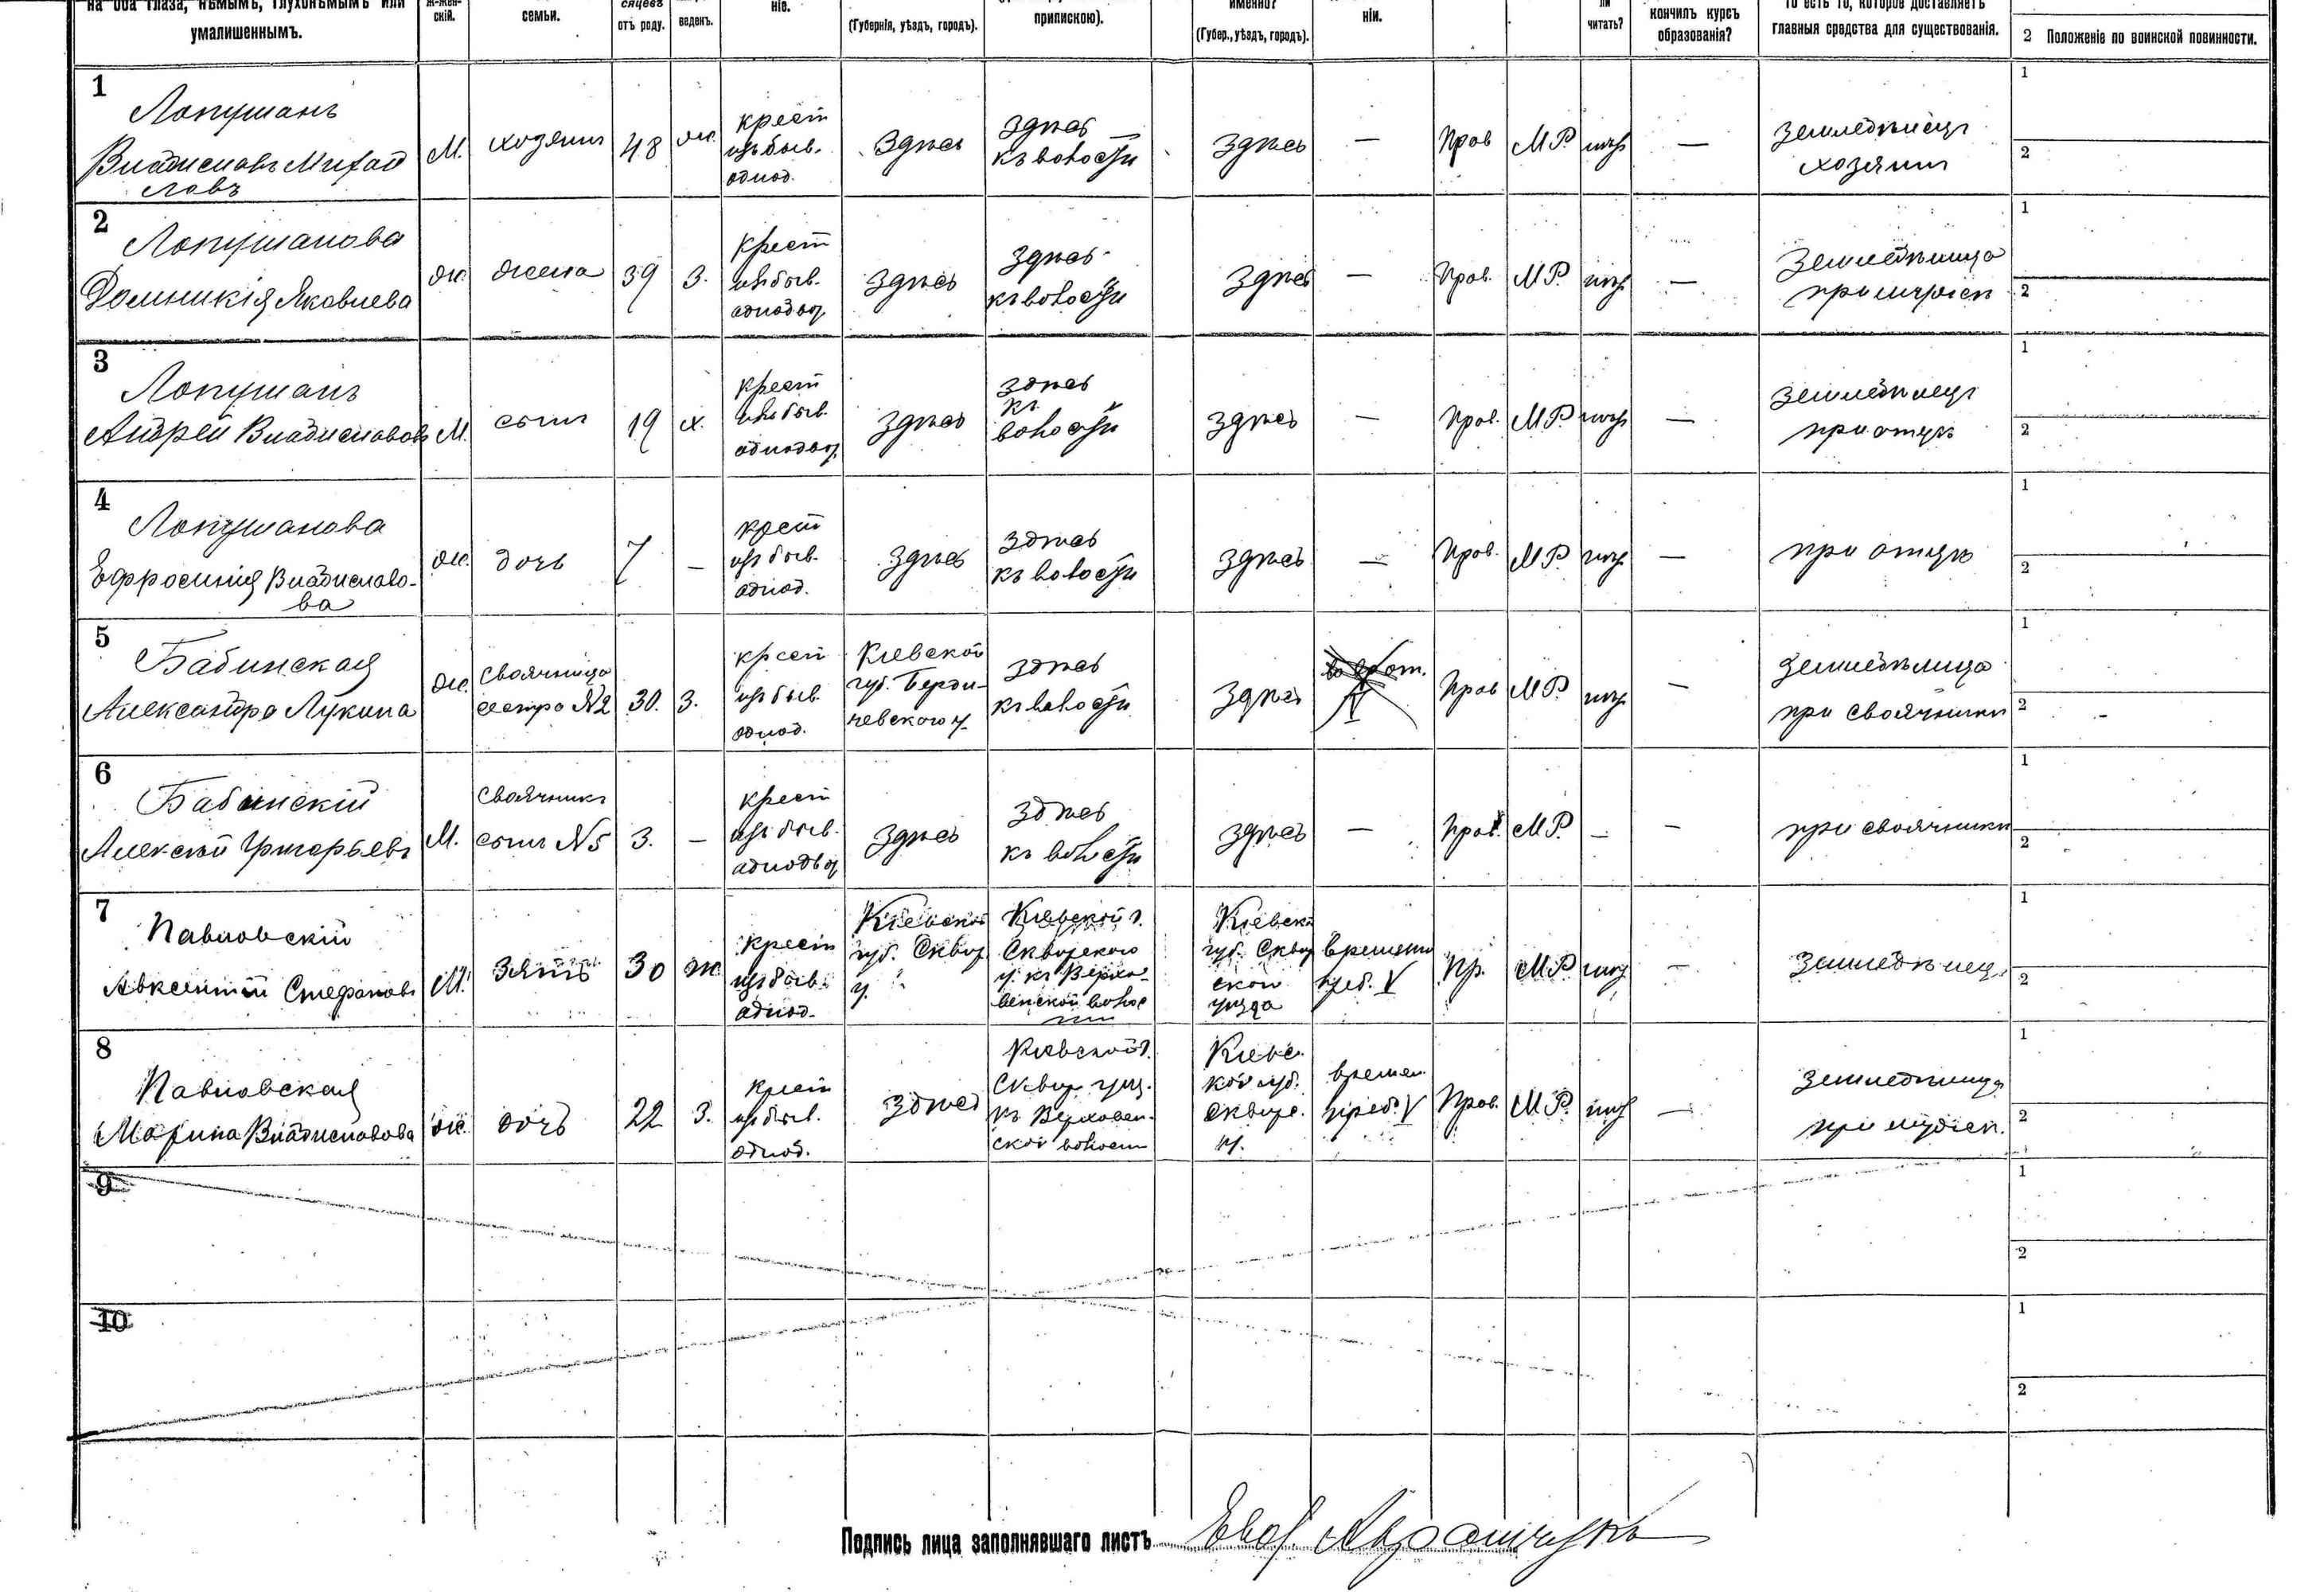 на оба глаза, нѣмымъ, глухонѣмымъ или
умалишеннымъ.
скій.
семьи.
сяцевъ
отъ роду.
веденъ.
ніе.
(Губернія, уѣздъ, городъ).
припискою).
именно?
(Губер., уѣздъ, городъ).
ніи.
ли
читать?
кончилъ курсъ
образованія?
то есть то, которое доставляетъ
главныя средства для существованія.
2 Положеніе по воинской повинности.
1
Лопушанъ
Владиславъ Михай
ловъ
М.
хозяинъ
48
ж.
крест
изъ быв.
однод.
Здѣсь
Здѣсь
къ волости
Здѣсь
—
Прав
МР
нѣтъ
—
Земледѣлецъ
хозяинъ
1
2
2
Лопушанова
Домникія Яковлева
Ж.
жена
39
З.
Крест
изъ быв.
однодвор.
Здѣсь
Здѣсь
къ волости
Здѣсь
—
Прав.
МР.
нѣтъ
—
Земледѣлица
1
2
3
Лопушанъ
Андрей Владиславовъ
М.
сынъ
19
х.
крест
изъ быв.
однодвор.
Здѣсь
здѣсь
къ
волости
Здѣсь
—
Прав.
МР.
нѣтъ
—
Земледѣлецъ
при отцѣ
1
2
4
Лопушанова
Ефросинія Владиславо-
ва
Ж.
дочь
7
—
крест
изъ быв.
однод.
Здѣсь
Здѣсь
къ волости
Здѣсь
—
Прав.
МР.
нѣтъ
—
при отцѣ
1
2
5
Бабинская
Александра Лукина
Ж.
Своячница
сестра №2
30.
З.
крест
изъ быв.
однод.
Кіевской
губ. Берди-
чевского у.
Здѣсь
къ волости
Здѣсь
Прав
МР.
нѣтъ
—
Земледѣлица
при своячники
1
2
6
Бабинскій
Алексѣй Григорьевъ
М.
Своячникъ
сынъ №5
3.
—
крест
изъ быв.
однодвор
Здѣсь
Здѣсь
къ волости
Здѣсь
—
Прав.
МР.
—
—
при своячники
1
2
7
Павловскій
Авксентій Стефановъ
М.
Зять
30
ж
крест
изъ быв.
однод.
Кіевской
губ. Сквир
у.
Кіевской г.
Сквирского
у. къ Верхо-
венской волос
ти
Кіевской
губ. Сквир
ской
уѣзда
временно
преб. V
Пр.
МР.
нѣтъ
—
Земледѣлецъ
1
2
8
Павловская
Марина Владиславова
Ж.
дочь
22
З.
крест
изъ быв.
однод.
Здѣсь
Кіевской г.
Сквир. уѣз.
къ Верховен-
ской волости
Кіевс
кой губ.
Сквирс.
у.
времен.
преб. V
Прав.
МР.
нѣтъ
—
Земледѣлица
1
2
9
1
2
10
1
2
Подпись лица заполнявшаго листъ